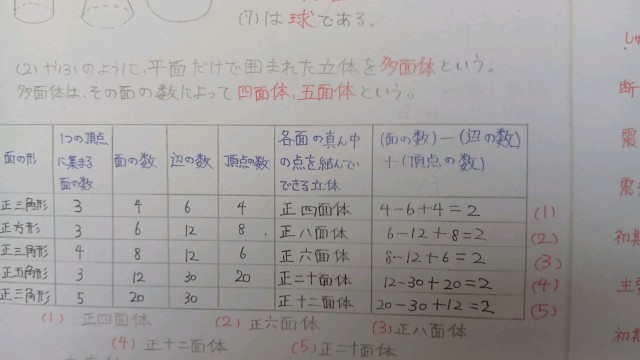 (7)は球である。
(2)や(3)のように、平面だけで囲まれた立体を多面体という。
多面体は、その面の数によって四面体、五面体という。
面の形 1つの頂点に集まる面の数 面の数 辺の数 頂点の数 各面の真ん中の点を結んでできる立体 (面の数)-(辺の数)+(頂点の数)
正三角形 3 4 6 4 正四面体 4-6+4=2 (1)
正方形 3 6 12 8 正八面体 6-12+8=2 (2)
正三角形 4 8 12 6 正六面体 8-12+6=2 (3)
正五角形 3 12 30 20 正二十面体 12-30+20=2 (4)
正三角形 5 20 30 正十二面体 20-30+12=2 (5)
(1) 正四面体 (2) 正六面体 (3) 正八面体
(4) 正十二面体 (5) 正二十面体
断
震
初期
主要
初期